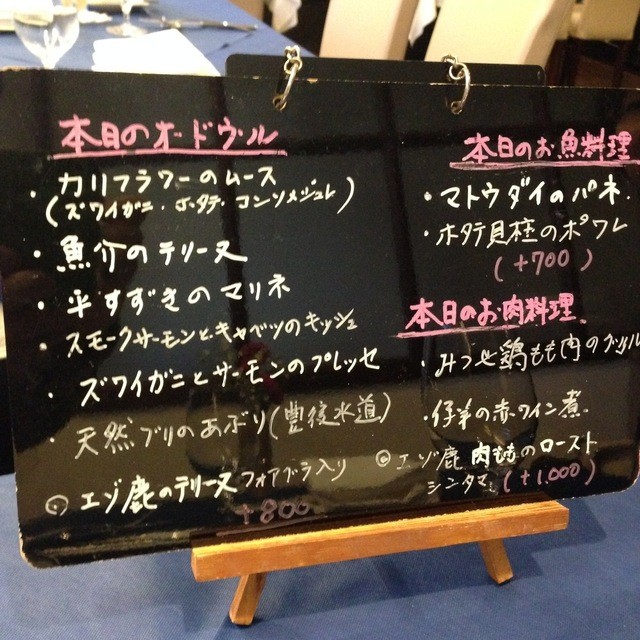 本日のオードヴル
・カリフラワーのムース
(ズワイガニ・ホタテ・コンソメジュレ)
・魚介のテリーヌ
・平すずきのマリネ
・スモークサーモンとキャベツのキッシュ
・ズワイガニとサーモンのプレッセ
・天然ブリのあぶり(豊後水道)
◎エゾ鹿のテリーヌ フォアグラ入り
+800
本日のお魚料理
・マトウダイのパネ
・ホタテ貝柱のポワレ
(+700)
本日のお肉料理
・みつせ鶏もも肉のグリル
・仔羊の赤ワイン煮
◎エゾ鹿 肉ももの ロースト
シンタマ (+1,000)